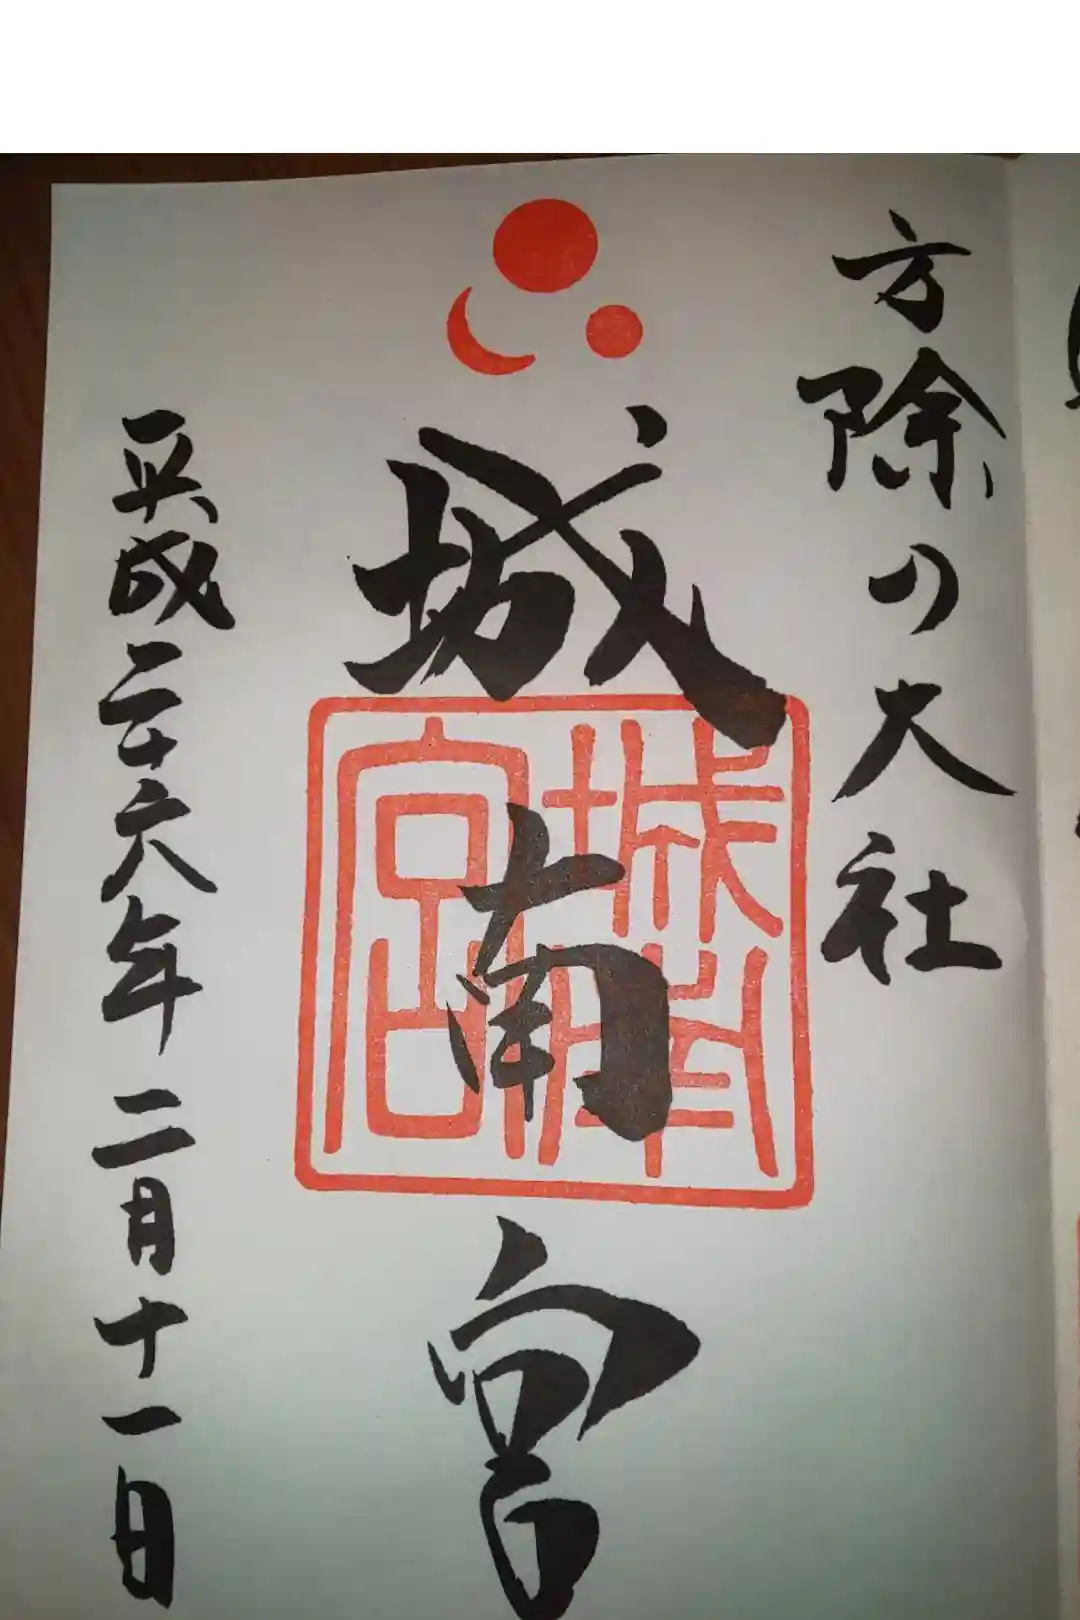 方除の大社
城南宮
城南宮
平成二十六年二月十一日